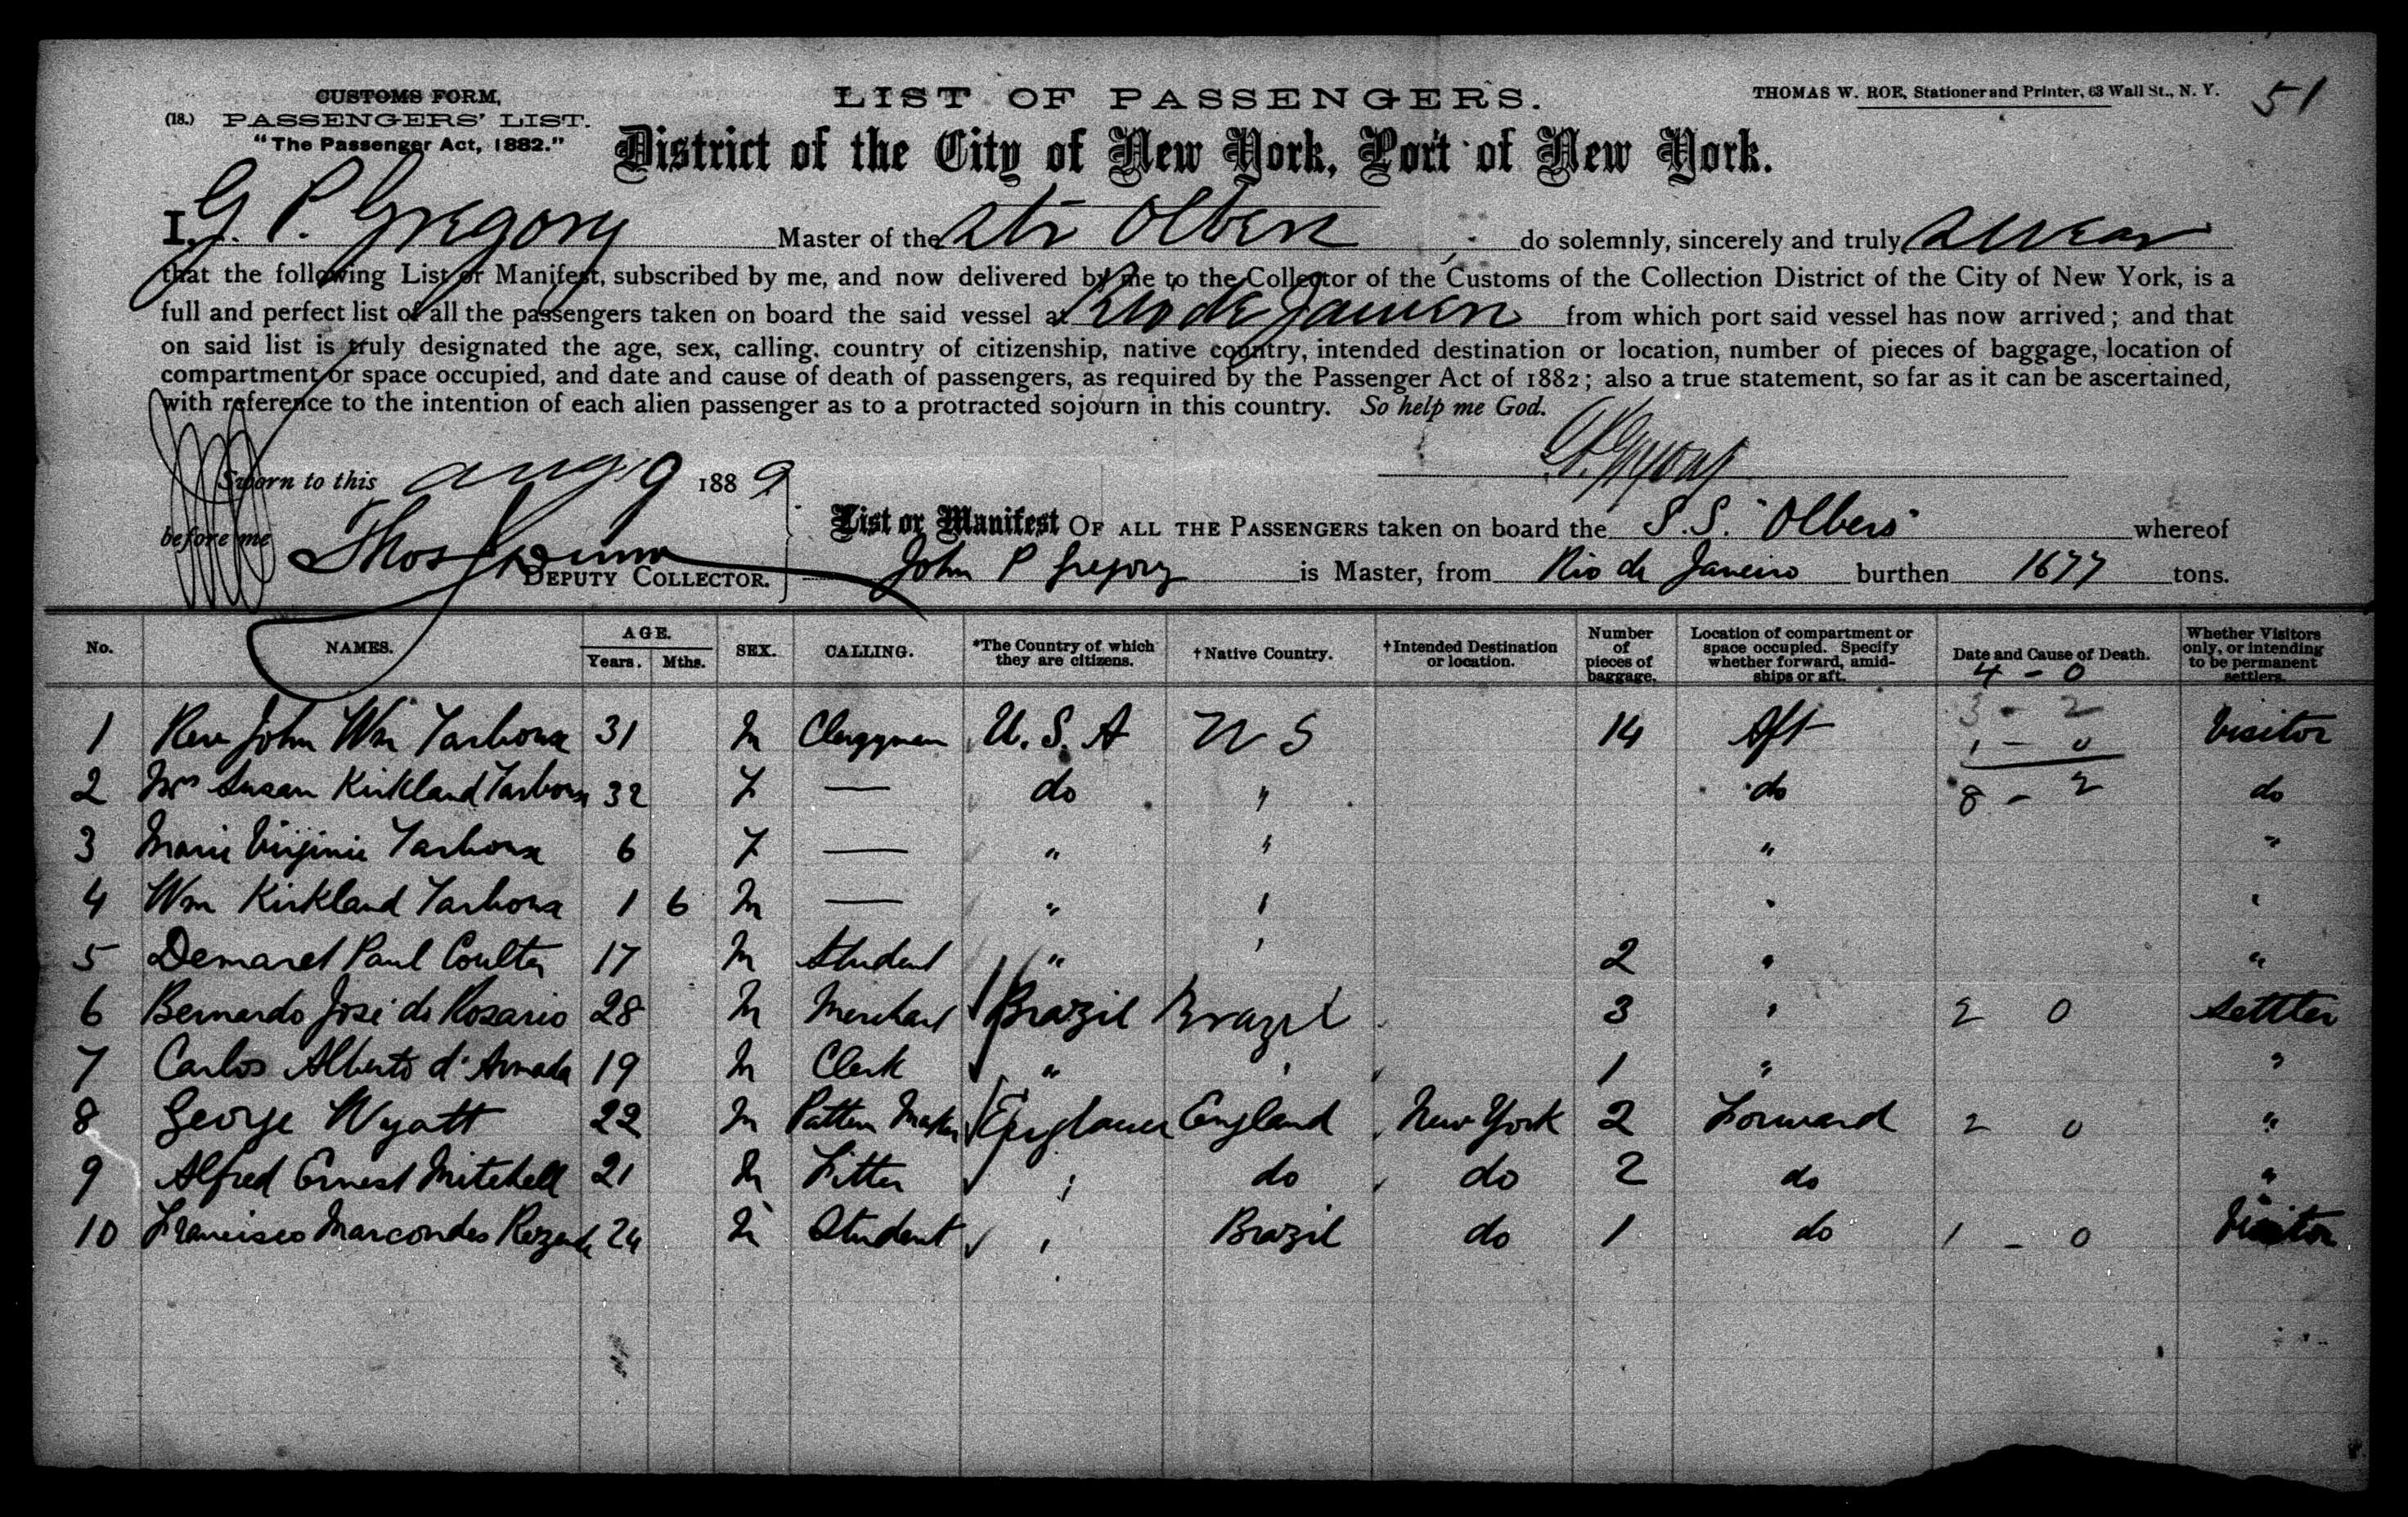 CUSTOMS FORM,
(18.) PASSENGERS' LIST.
"The Passenger Act, 1882."
LIST OF PASSENGERS.
THOMAS W. ROE, Stationer and Printer, 63 Wall St., N. Y.
51
District of the City of New York, Port of New York.
I, G. P. Gregory Master of the Str Olbers do solemnly, sincerely and truly swear
that the following List or Manifest, subscribed by me, and now delivered by me to the Collector of the Customs of the Collection District of the City of New York, is a
full and perfect list of all the passengers taken on board the said vessel at Rio de Janeiro from which port said vessel has now arrived; and that
on said list is truly designated the age, sex, calling, country of citizenship, native country, intended destination or location, number of pieces of baggage, location of
compartment or space occupied, and date and cause of death of passengers, as required by the Passenger Act of 1882; also a true statement, so far as it can be ascertained,
with reference to the intention of each alien passenger as to a protracted sojourn in this country. So help me God.
Sworn to this Aug 9 1889
before me Thos Dunn
DEPUTY COLLECTOR.
List or Manifest OF ALL THE PASSENGERS taken on board the S.S. "Olbers" whereof
John P Gregory is Master, from Rio de Janeiro burthen 1677 tons.
No. NAMES. AGE. Years. Mths. SEX. CALLING. *The Country of which they are citizens. †Native Country. †Intended Destination or location. Number of pieces of baggage. Location of compartment or space occupied. Specify whether forward, amidships or aft. Date and Cause of Death. Whether Visitors only, or intending to be permanent settlers.
4 - 0
3 - 2
1 Rev John Wm Tarboux 31 M Clergyman U.S.A U S 14 Aft 1 - 0 Visitor
2 Mrs Susan Kirkland Tarboux 32 F — do " do 8 - 2 do
3 Marie Virginie Tarboux 6 F — " " " "
4 Wm Kirkland Tarboux 1 6 M — " " " "
5 Demaret Paul Coulter 17 M Student " " 2 " "
6 Bernardo José do Rosario 28 M Merchant Brazil Brazil 3 " 2 0 Settler
7 Carlos Alberto d'Armada 19 M Clerk " " 1 " "
8 George Wyatt 22 M Pattern Maker England England New York 2 Forward 2 0 "
9 Alfred Ernest Mitchell 21 M Fitter " do do 2 do "
10 Francisco Marcondes Rezende 24 M Student " Brazil do 1 do 1 - 0 Visitor